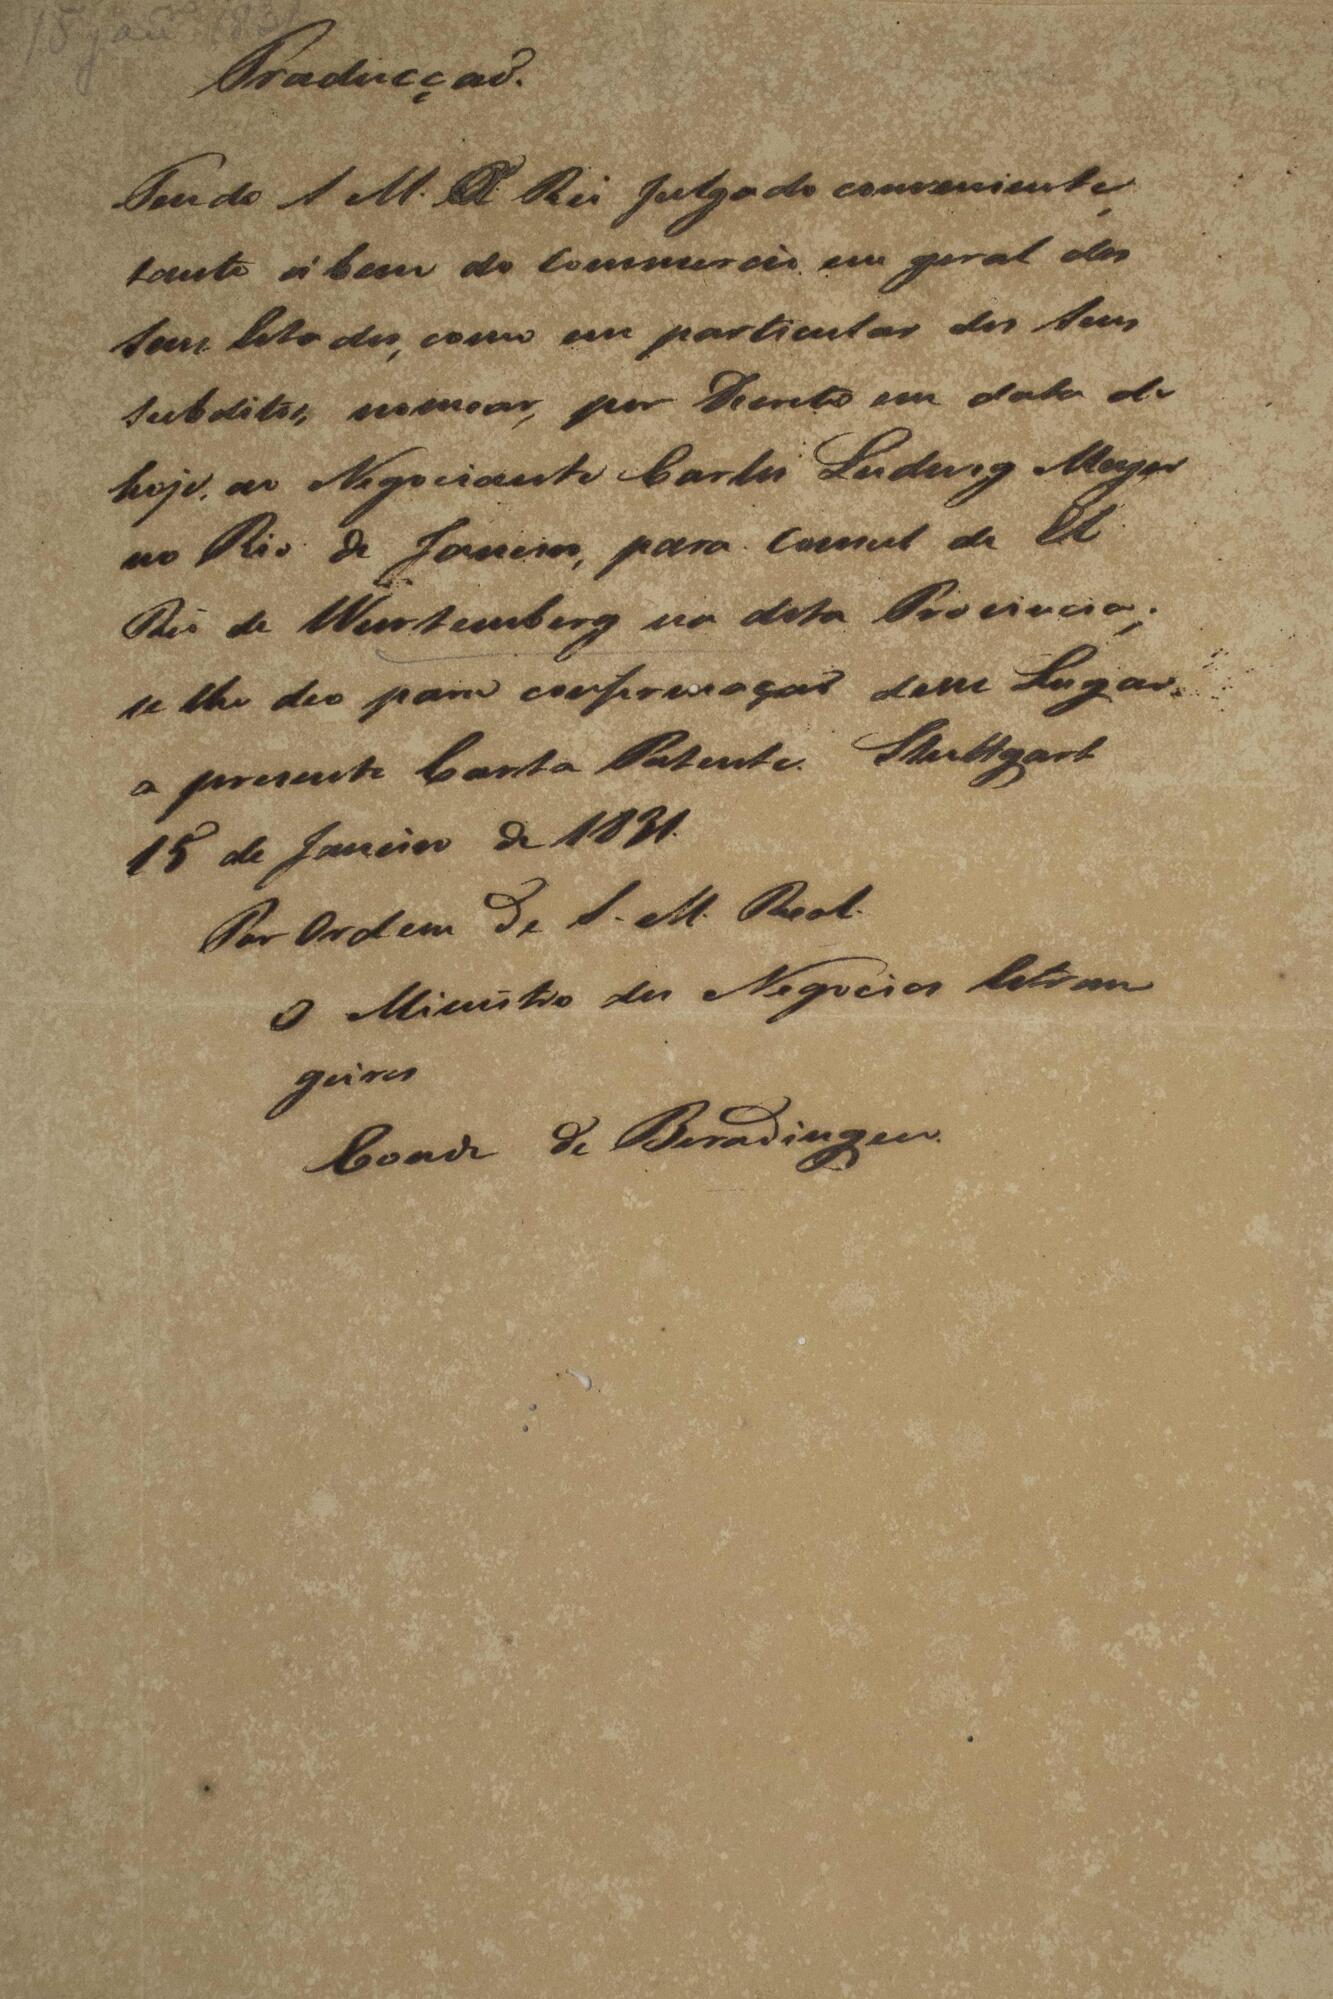 15 jan.ro 1831
Traducçaõ.
Tendo S. M. El Rei julgado conveniente,
tanto á bem do Commercio em geral dos
seus Estados, como em particular dos seus
subditos, nomear, por Decreto em data de
hoje, ao Negociante Carlos Ludwig Meyer
no Rio de Janeiro, para Consul de El
Rei de Würtemberg na dita Provincia;
se lhe deo para confirmaçaõ desse Lugar
a presente Carta Patente. Stuttgart
15 de Janeiro de 1831.
Por Ordem de S. M. Real.
O Ministro dos Negocios Estran
geiros
Conde de Beradingen.